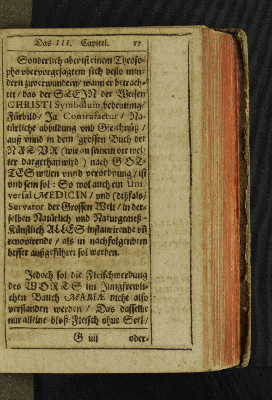 Das III. Capitel. 87
Sonderlich aber ist einem Theoso-
pho obervorgesagtem sich desto min-
dern zuverwundern/ wann er betrach-
tet/ das der STEIN der Weisen
CHRISTI Symbolum, bedeutung/
Fürbild/ Ja Contrafactur/ Na-
türliche abbildung vnd Gleichnüß/
auß vnnd in dem grossen Buch der
NATVR (wie an seinem ort wei-
ter dargethan wird) nach GOT-
TES willen vnnd verordnung/ ist
vnd sein sol: So wol auch ein Uni
versal MEDICIN/ vnd (dißfals)
Servator der Grossen Welt/ in der-
selben Natürlich vnd Naturgemeß-
Künstlich ALLES instaurirende vñ
renovirende/ als in nachfolgendem
besser außgeführet sol werden.
Jedoch sol die Fleischwerdung
des WORTS im Jungfrewli-
chen Bauch MARIÆ nicht also
verstanden werden/ Das dasselbe
nur alleine bloß Fleisch ohne Seel/
G iiij oder-